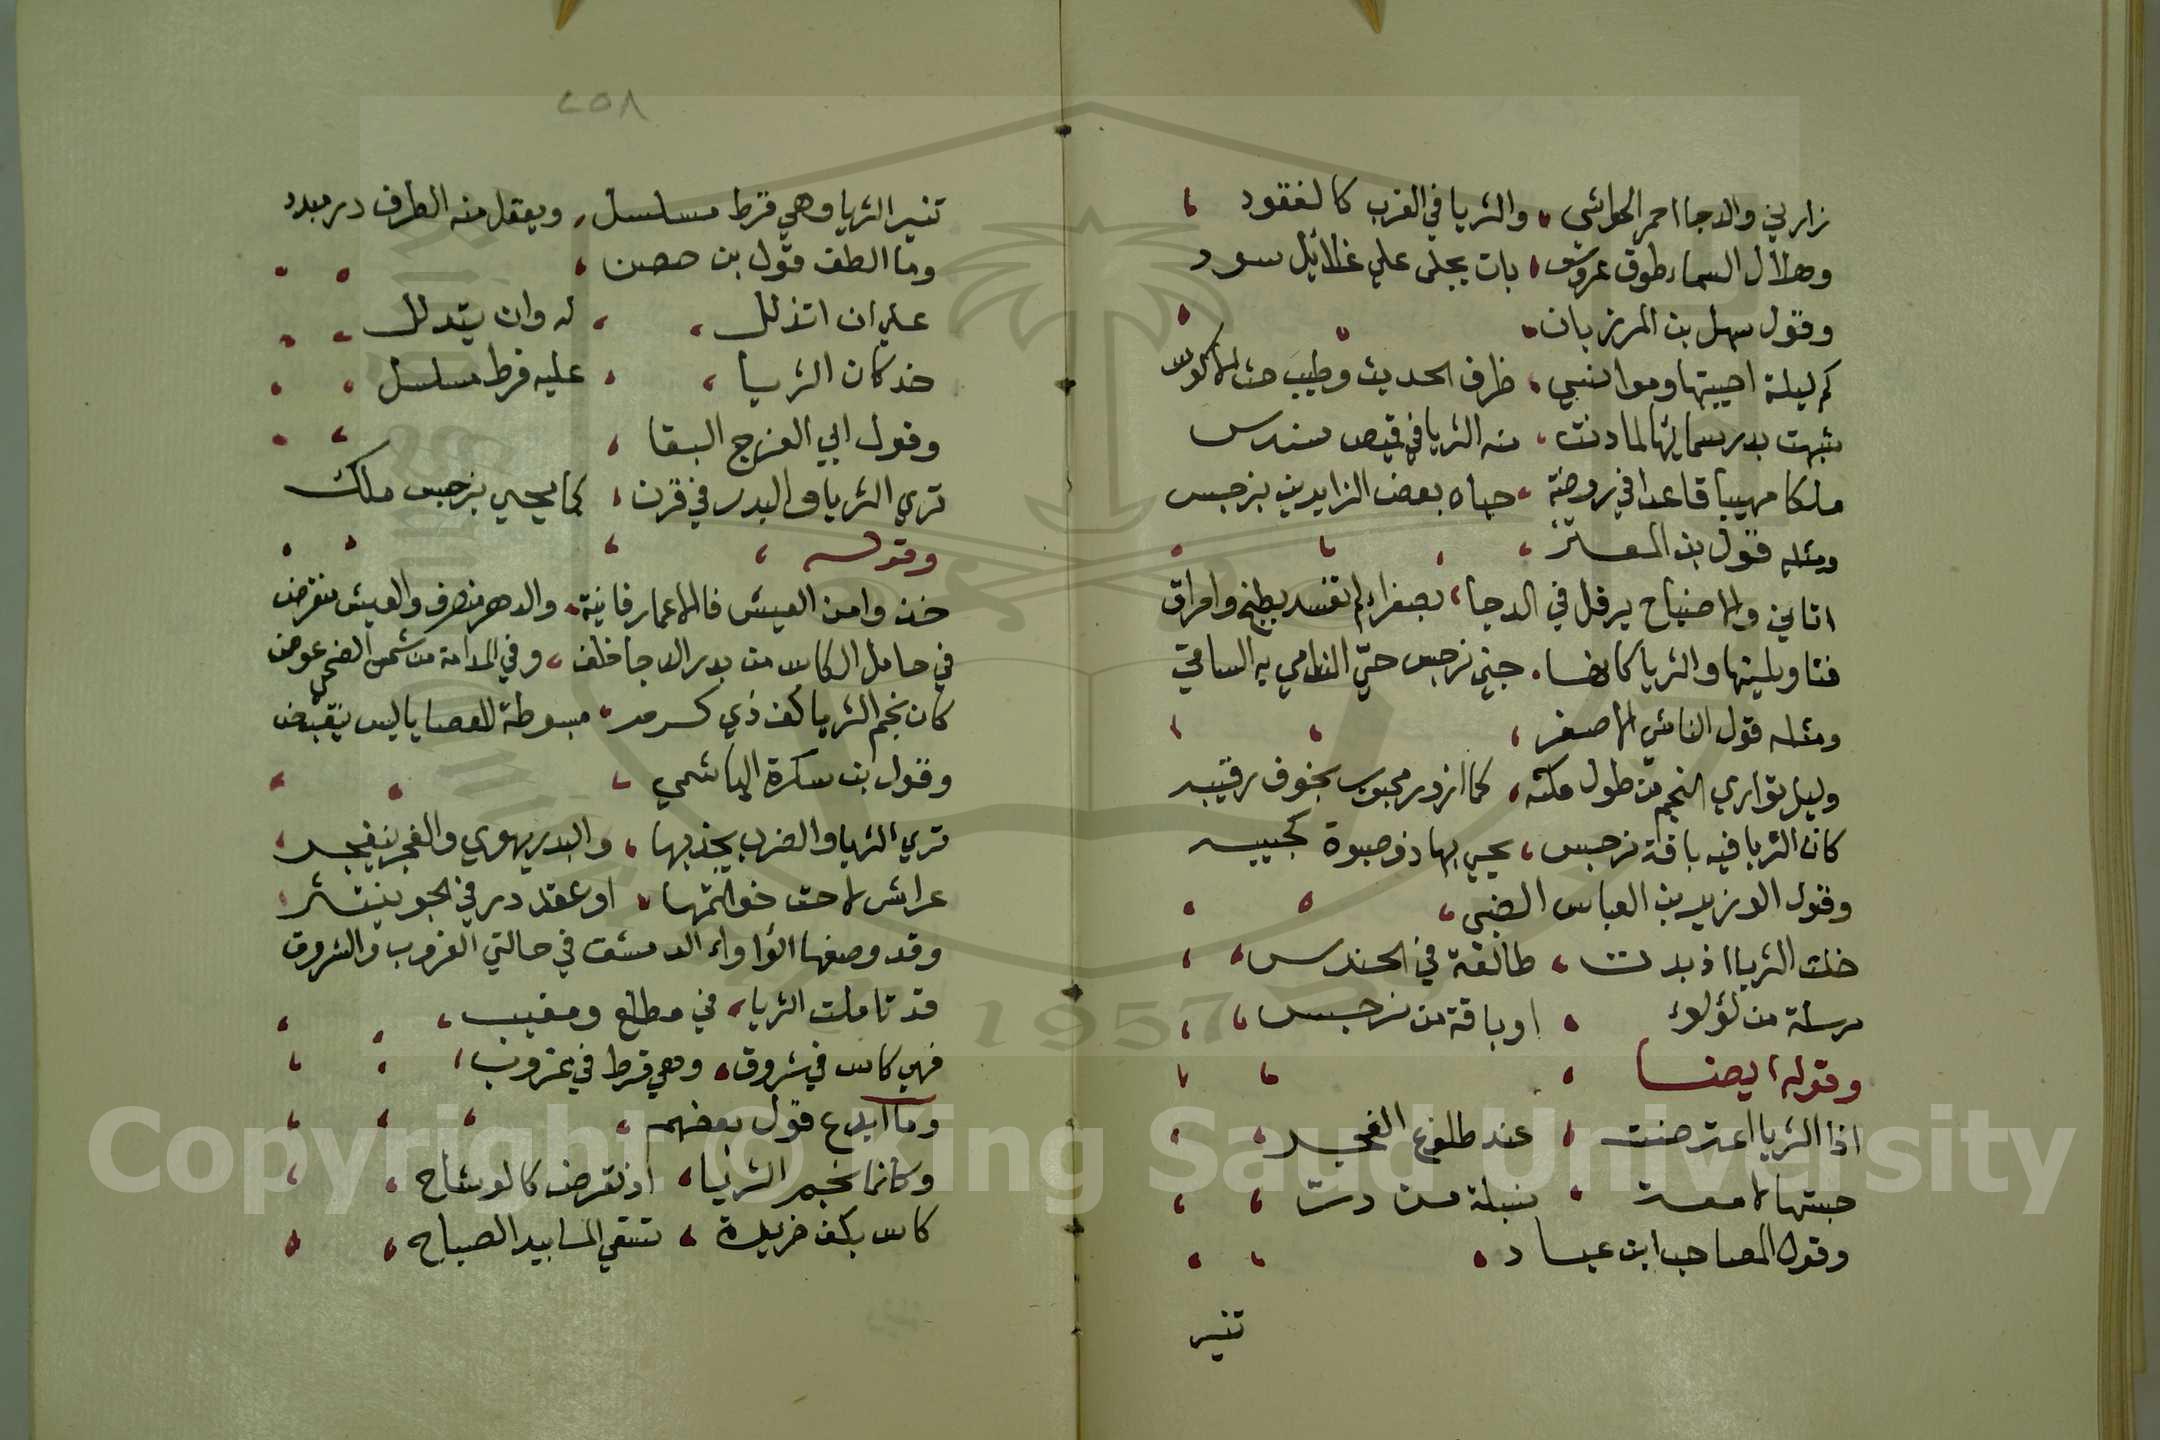 زارني والدجا احمر الحواشي والثريا في الغرب كالعنقود
وهلال السماء طوق عروس بات يجلى علي غلائل سود
وقول سهل بن المرزبان
كم ليلة احييتها وموانسي ظرف الحديث وطيب حث الاكوس
شبهت بدر سمائها لما دنت منه الثريا في قميص سندس
ملكا مهيبا قاعدا في روضة حياه بعض الزايرين بنرجس
ومثله قول بن المعتز
اتاني والاصباح يرفل في الدجا بصفراء لم تفسد بطبخ واحراق
فناولينها والثريا كانها جني نرجس حيّي الندامي به الساقي
ومثله قول الناشي الاصغر
وليل تواري النجم من طول مكثه كما ازور محبوب بخوف رقيبه
كان الثريا فيه باقة نرجس يحيي بها ذو صبوة لحبيبه
وقول الوزير بن العباس الضبي
خلت الثريا اذ بدت طالعة في الحندس
مرسلة من لؤلوء او باقة من نرجس
وقوله ايضا
اذا الثريا اعترضت عند طلوع الفجر
حسبتها لامعة سنبلة من در
وقول الصاحب ابن عباد
تنير
٢٥٨
تنير الثريا وهي قرط مسلسل ويعقل منه الطرف در مبدد
وما الطف قول بن حصن
علي ان اتذلل له وان يتدلل
خد كان الثريا عليه قرط مسلسل
وقول ابي الفرج الببغا
تري الثريا والبدر في قرن كما يحيي بنرجس ملك
وقوله
خذوا من العيش فالاعمار فانية والدهر منصرف والعيش منقرض
في حامل الكاس من بدر الدجا خلف وفي المدامة من شمس الضحى عوض
كان نجم الثريا كف ذي كرم مبسوطة للعطايا ليس ينقبض
وقول ابن سكرة الهاشمي
تري الثريا والغرب يجذبها والبدر يهوي والفجر ينفجر
عرائش لاحت خواتمها او عقد در في الجو ينتثر
وقد وصفها الواواء الدمشقي في حالتي الغروب والشروق
قد تاملت الثريا في مطلع ومغيب
فهي كاس في شروق وهي قرط في غروب
وما ابدع قول بعضهم
وكانما نجم الثريا اذ تعرض كالوشاح
كاس بكف خريدة تسقي المسا بيد الصباح
1957
Copyright © King Saud University